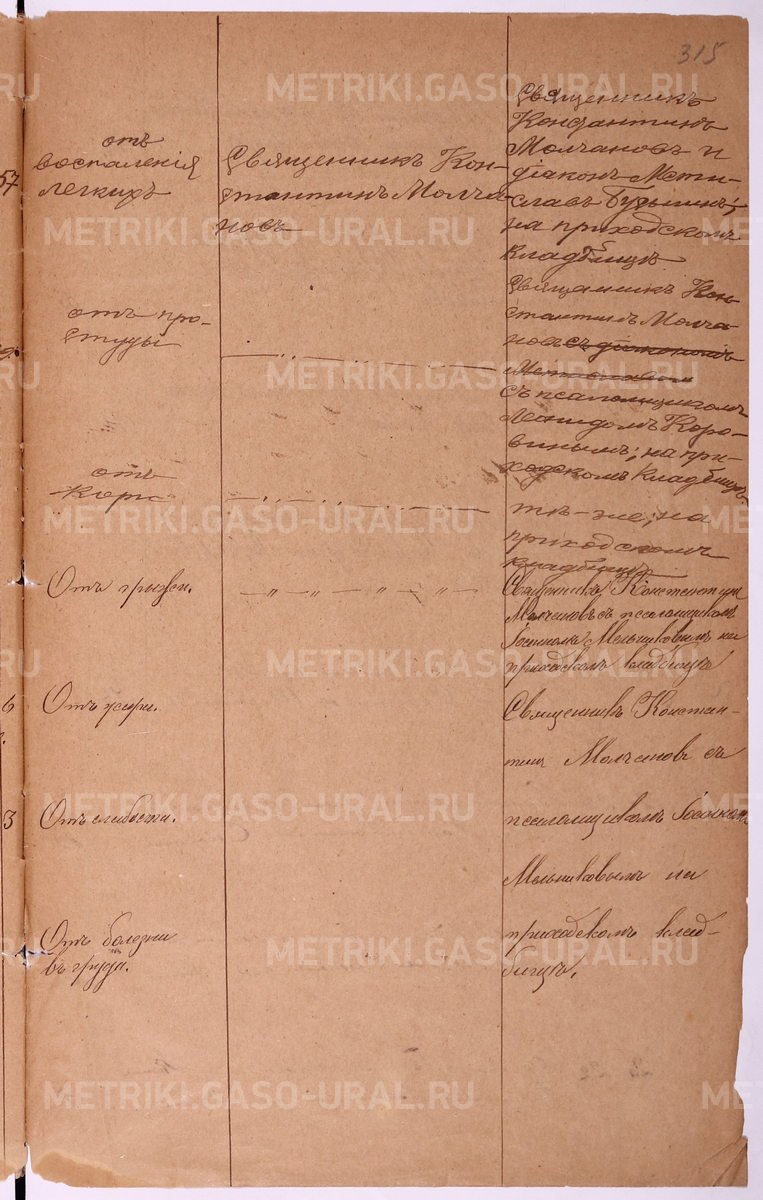 315
отъ
воспаленія
легкихъ
Священникъ Кон-
стантинъ Молча-
новъ
Священникъ
Константинъ
Молчановъ и
діаконъ Мсти-
славъ
на приходскомъ
кладбищѣ
57
отъ про-
студы
Священникъ Кон-
стантинъ Молча-
новъ съ діакономъ
съ псаломщикомъ
Леонидомъ Коро-
винымъ; на при-
ходскомъ кладбищѣ
отъ
кори
тѣ-же; на
приходскомъ
кладбищѣ
Отъ грыжи.
— " — " — " — " —
Священникъ Константинъ
Молчановъ съ псаломщикомъ
Мельниковымъ на
приходскомъ кладбищѣ
6
Отъ
Священникъ Констан-
тинъ Молчановъ съ
3
Отъ слабости.
псаломщикомъ
Мельниковымъ на
Отъ болезни
въ груди.
приходскомъ клад-
бищѣ.
METRIKI.GASO-URAL.RU